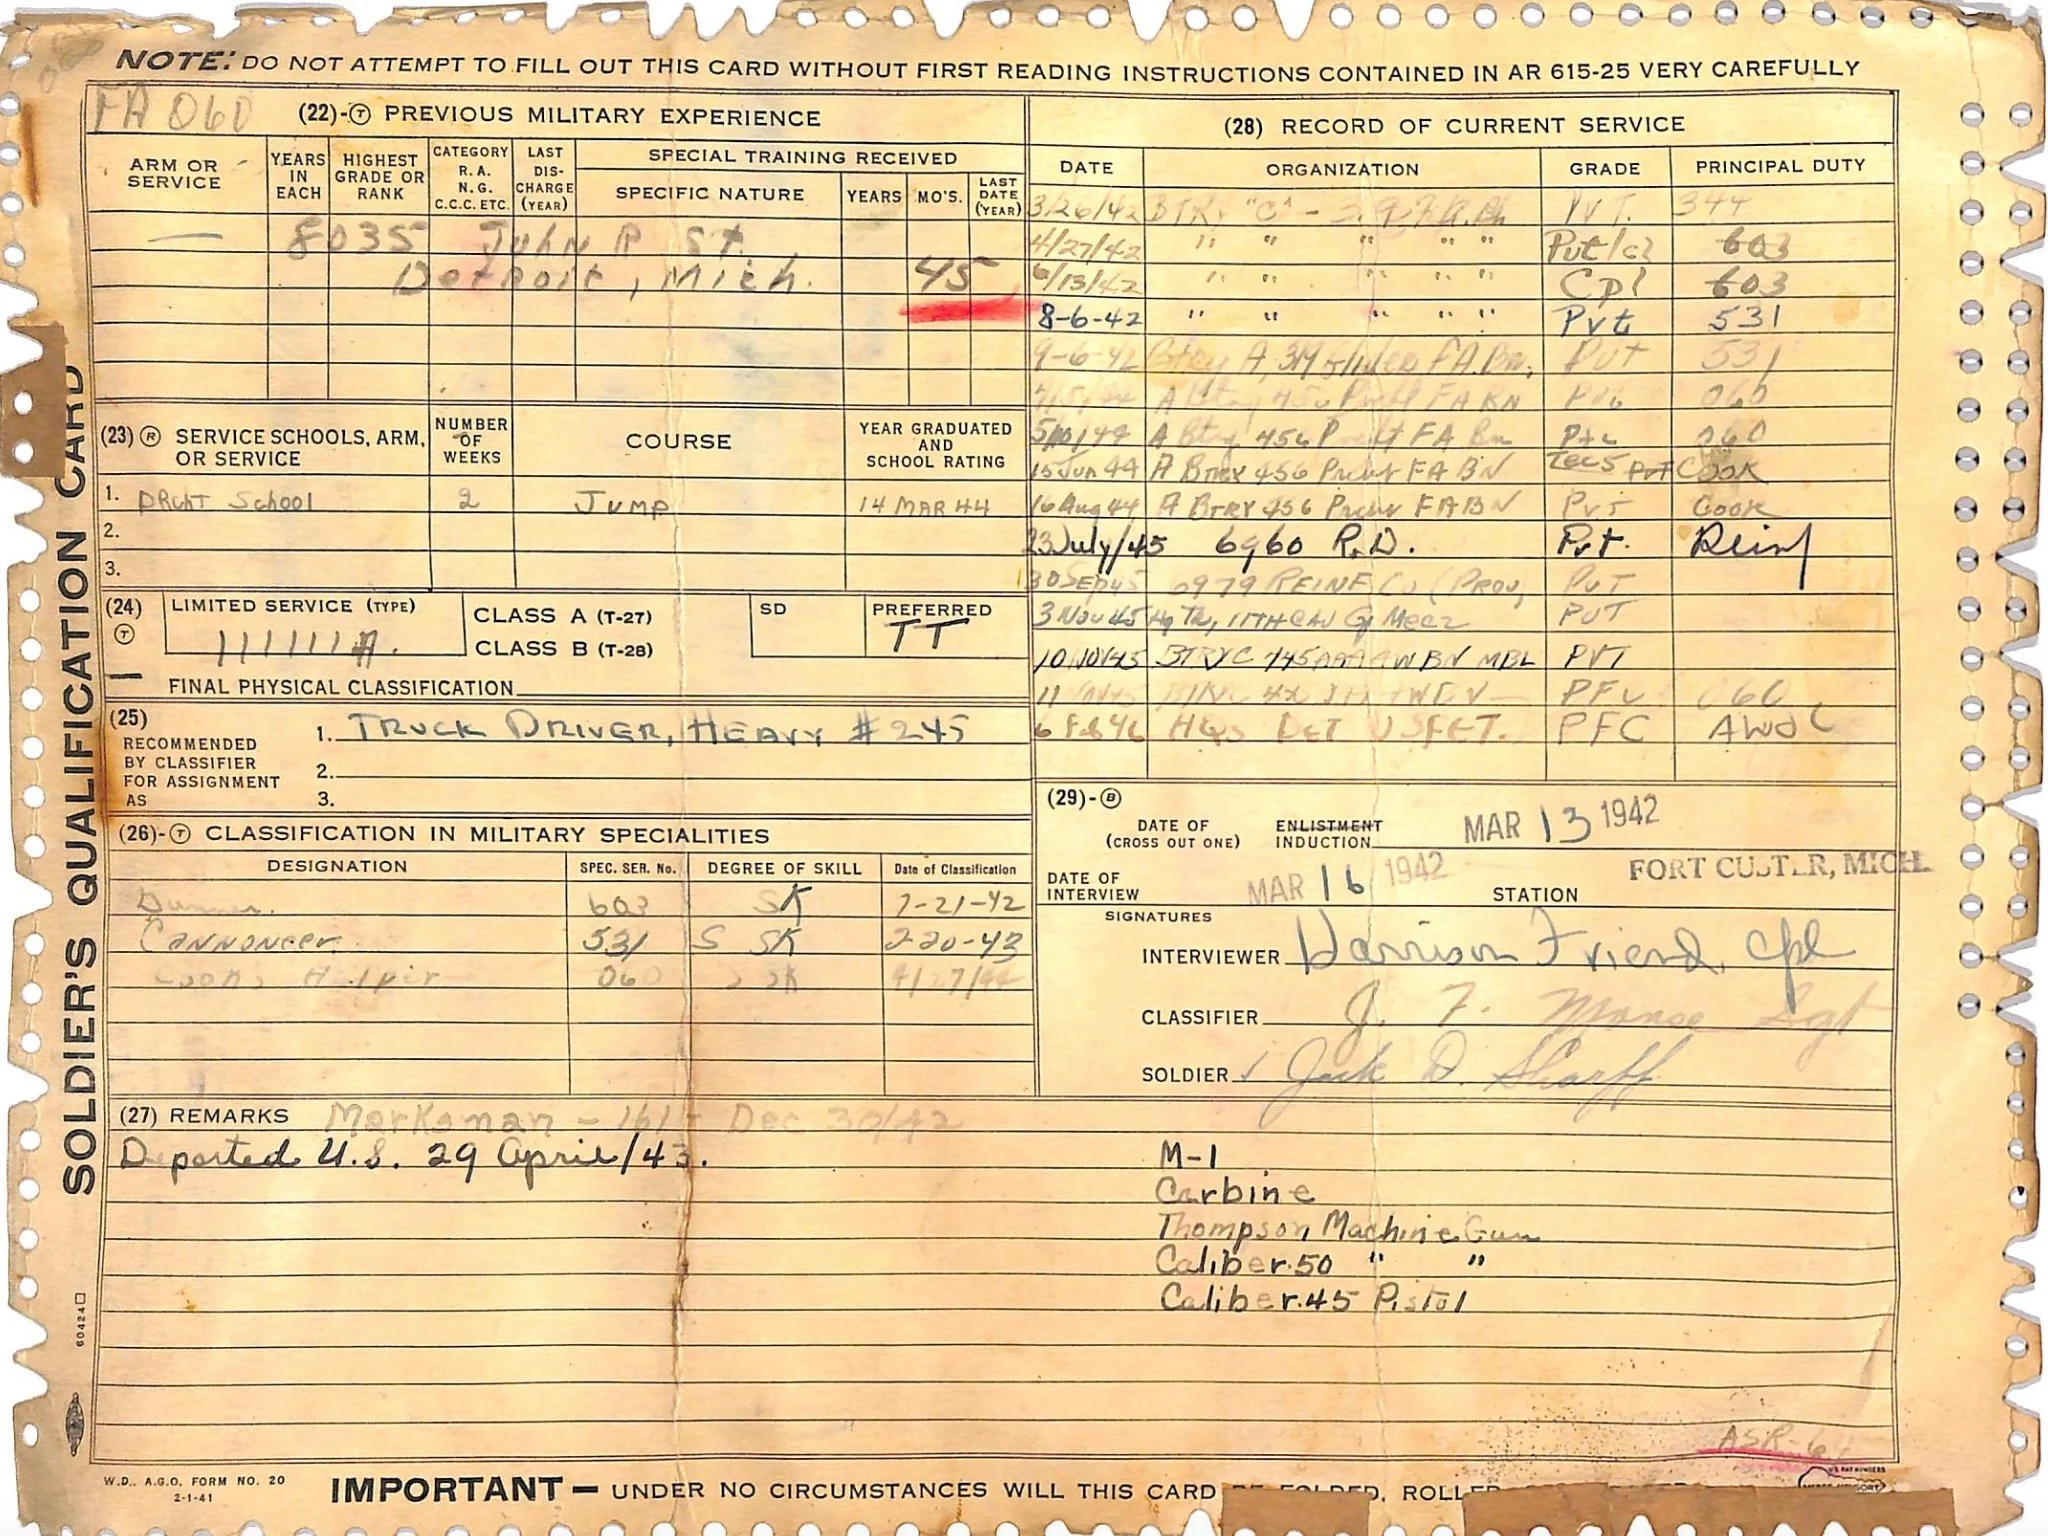 NOTE: DO NOT ATTEMPT TO FILL OUT THIS CARD WITHOUT FIRST READING INSTRUCTIONS CONTAINED IN AR 615-25 VERY CAREFULLY
FA 060
(22)-T PREVIOUS MILITARY EXPERIENCE
ARM OR SERVICE
YEARS IN EACH
HIGHEST GRADE OR RANK
CATEGORY R. A. N. G. C.C.C. ETC.
LAST DIS-CHARGE (YEAR)
SPECIAL TRAINING RECEIVED
SPECIFIC NATURE
YEARS
MO'S.
LAST DATE (YEAR)
— 8035 John R St.
Detroit, Mich. 45
(23) R SERVICE SCHOOLS, ARM, OR SERVICE
NUMBER OF WEEKS
COURSE
YEAR GRADUATED AND SCHOOL RATING
1. PRCHT School 2 JUMP 14 MAR 44
2.
3.
(24) T
LIMITED SERVICE (TYPE)
111111A.
CLASS A (T-27)
CLASS B (T-28)
SD
PREFERRED
TT
FINAL PHYSICAL CLASSIFICATION
(25) RECOMMENDED BY CLASSIFIER FOR ASSIGNMENT AS
1. TRUCK DRIVER, HEAVY # 245
2.
3.
(26)-T CLASSIFICATION IN MILITARY SPECIALITIES
DESIGNATION SPEC. SER. No. DEGREE OF SKILL Date of Classification
603 SK 7-21-42
Cannoneer 531 S SK 2-20-43
Cook's Helper 060 SK 4/27/44
(28) RECORD OF CURRENT SERVICE
DATE ORGANIZATION GRADE PRINCIPAL DUTY
3/26/42 BTRY "C" - Pvt. 344
4/27/42 " " " " " Pvt/cl 603
6/13/42 " " " " " Cpl 603
8-6-42 " " " " " Pvt 531
9-6-42 Btry A, 319 Glider F A. Bn. Pvt 531
A Btry 456 Prcht F A BN Pvt 060
A Btry 456 Prcht F A Bn Pfc 060
15 Jun 44 A Btry 456 Prcht F A BN Tec 5 Pvt Cook
16 Aug 44 A BTRY 456 Prcht F A BN Pvt Cook
23 July/45 6960 R.D. Pvt. Reinf
30 Sep 45 6979 REINF Co (Prov) Pvt
3 Nov 45 Hq Tr, 11TH CAV Gp Mecz PVT
10 NOV 45 BTRY C 745 AAA AW BN MBL PVT
11 PFC 060
6 Feb 46 HQS DET USFET. PFC
(29)-B
DATE OF ENLISTMENT INDUCTION MAR 13 1942
(CROSS OUT ONE)
DATE OF INTERVIEW MAR 16 1942 STATION FORT CUSTER, MICH.
SIGNATURES
INTERVIEWER Harrison Friend, Cpl
CLASSIFIER J. F. Sgt
SOLDIER ✓ Jack D. Sharff
(27) REMARKS Marksman - 161 - Dec 30/42
Departed U.S. 29 April/43.
M-1
Carbine
Thompson Machine Gun
Caliber.50 " "
Caliber.45 Pistol
ASR-64
SOLDIER'S QUALIFICATION CARD
60424
W.D., A.G.O. FORM NO. 20
2-1-41
IMPORTANT — UNDER NO CIRCUMSTANCES WILL THIS CARD BE FOLDED, ROLLED